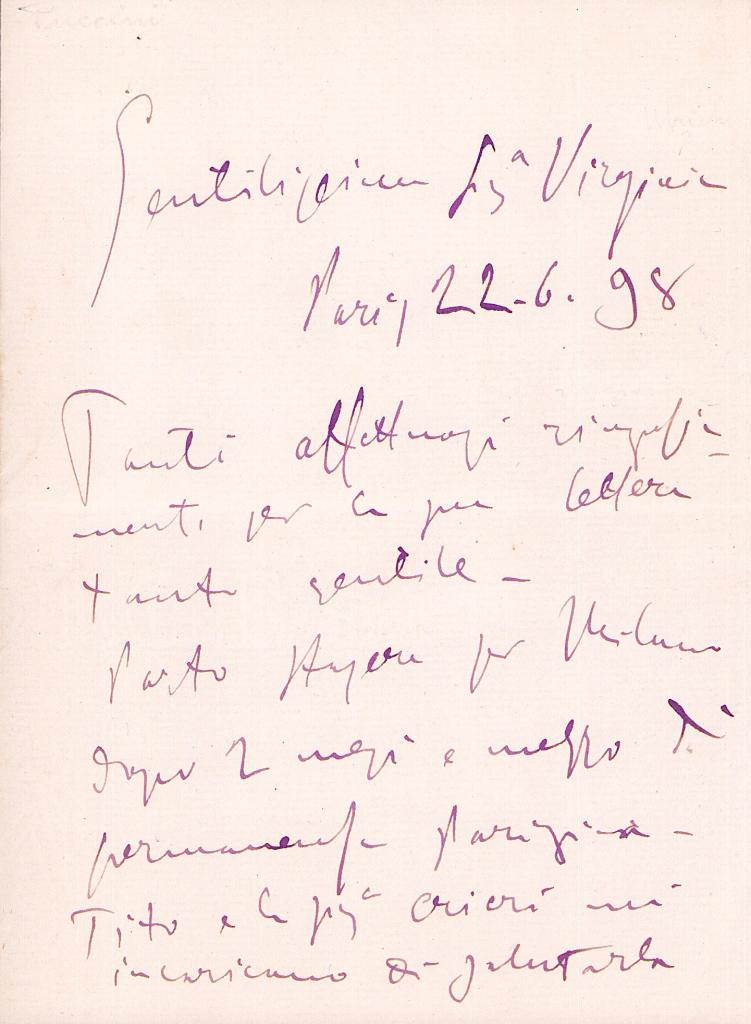 Puccini
Gentilissima Sigª Virginia
Parigi 22-6.98
Tanti affettuosi ringrazia-
menti per la sua lettera
tanto gentile -
Parto stasera per Milano
dopo 2 mesi e mezzo di
permanenza Parigina -
Tito e la sigª mi
incaricano di salutarla